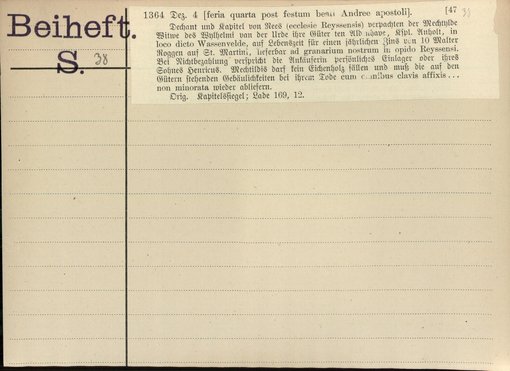 Beiheft.
S. 38
1364 Dez. 4 [feria quarta post festum beati Andree apostoli]. [47
38
Dechant und Kapitel von Rees (ecclesie Reyssensis) verpachten der Mechtylde
Witwe des Wylhelmi van der Urde ihre Güter ten Ald have, Kspl. Anholt, in
loco dicto Wassenvelde, auf Lebenszeit für einen jährlichen Zins von 10 Malter
Roggen auf St. Martini, lieferbar ad granarium nostrum in opido Reyssensi.
Bei Nichtbezahlung verspricht die Ankäuferin persönliches Einlager oder ihres
Sohnes Henricus. Mechtildis darf kein Eichenholz fällen und muß die auf den
Gütern stehenden Gebäulichkeiten bei ihrem Tode cum omnibus clavis affixis ...
non minorata wieder abliefern.
Orig. Kapitelssiegel; Lade 169, 12.